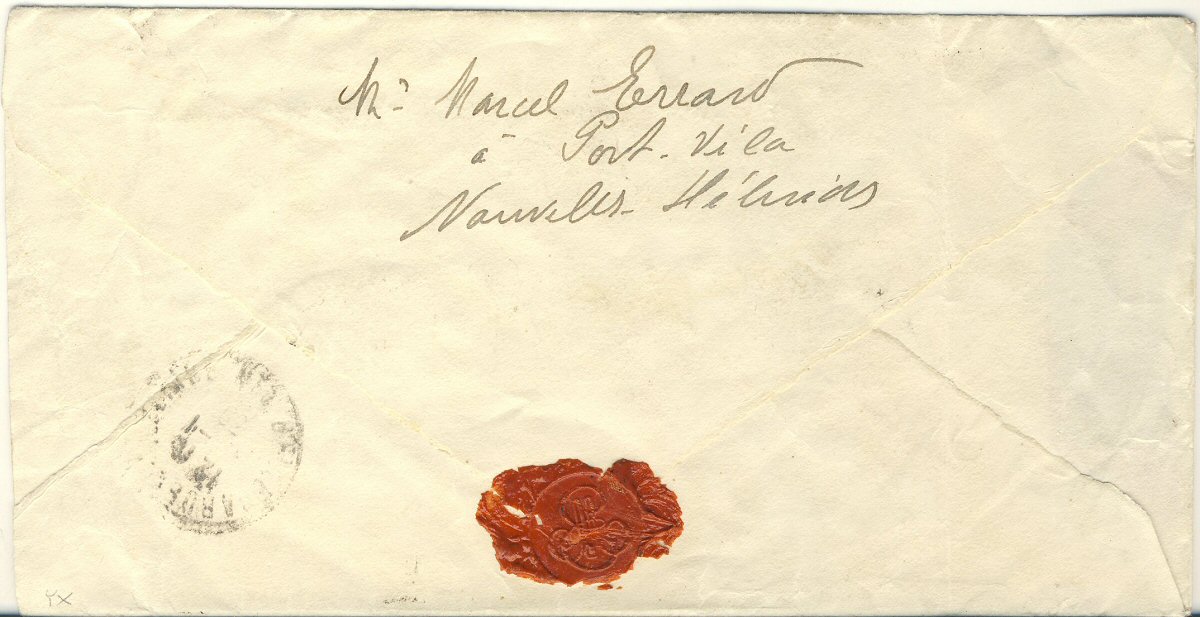 Mr Marcel Errard
à Port-Vila
Nouvelles-Hébrides
YX